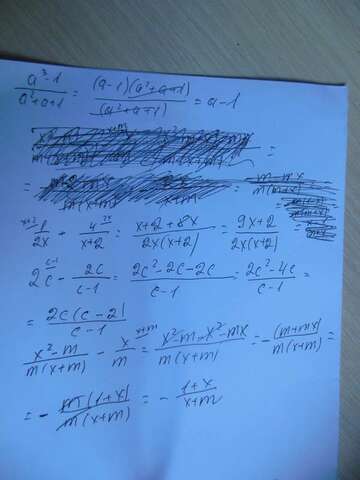 a³-1/a²+a+1 = (a-1)(a²+a+1)/(a²+a+1) = a-1
m-mx/m(m+x)
x+2 1/2x + 4 2x/x+2 = x+2+8x/2x(x+2) = 9x+2/2x(x+2)
2c c-1 - 2c/c-1 = 2c²-2c-2c/c-1 = 2c²-4c/c-1 =
= 2c(c-2)/c-1
x²-m/m(x+m) - x x+m/m = x²-m-x²-mx/m(x+m) = -(m+mx)/m(x+m) =
= - m(1+x)/m(x+m) = - 1+x/x+m